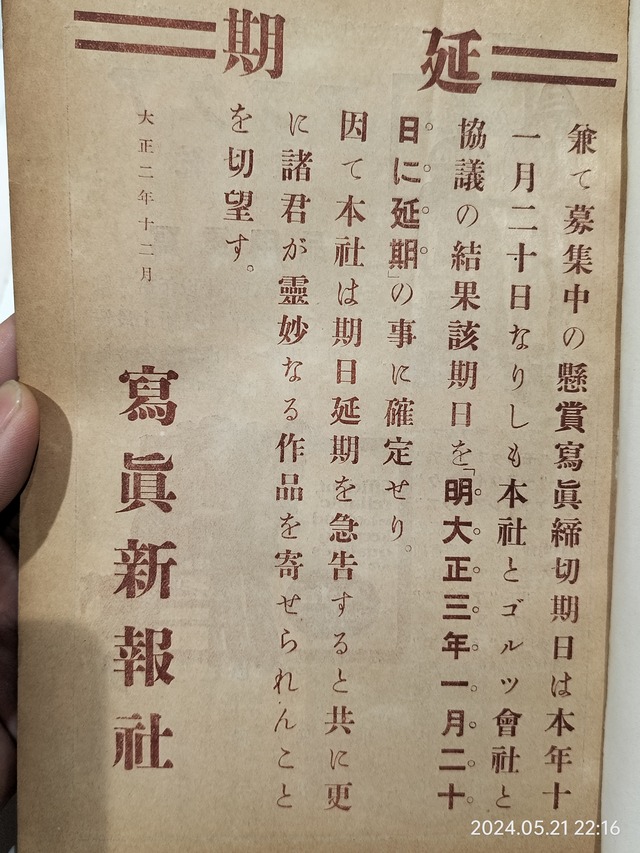 延期
兼て募集中の懸賞寫眞締切期日は本年十
一月二十日なりしも本社とゴルツ會社と
協議の結果該期日を「明大正三年一月二十
日に延期」の事に確定せり。
因て本社は期日延期を急告すると共に更
に諸君が靈妙なる作品を寄せられんこと
を切望す。
大正二年十二月
寫眞新報社
2024.05.21 22:16